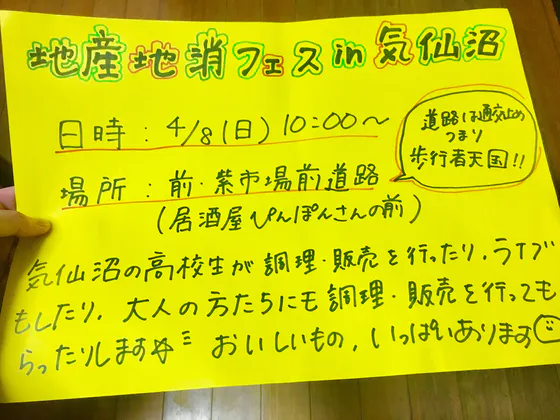 地産地消フェス in 気仙沼
日時：4/8(日) 10:00～
道路は通行止め
つまり
歩行者天国!!
場所：前・紫市場前道路
(居酒屋ぴんぽんさんの前)
気仙沼の高校生が調理・販売を行ったり、ライブ
もしたり、大人の方たちにも調理・販売を行っても
らったりします おいしいもの、いっぱいあります